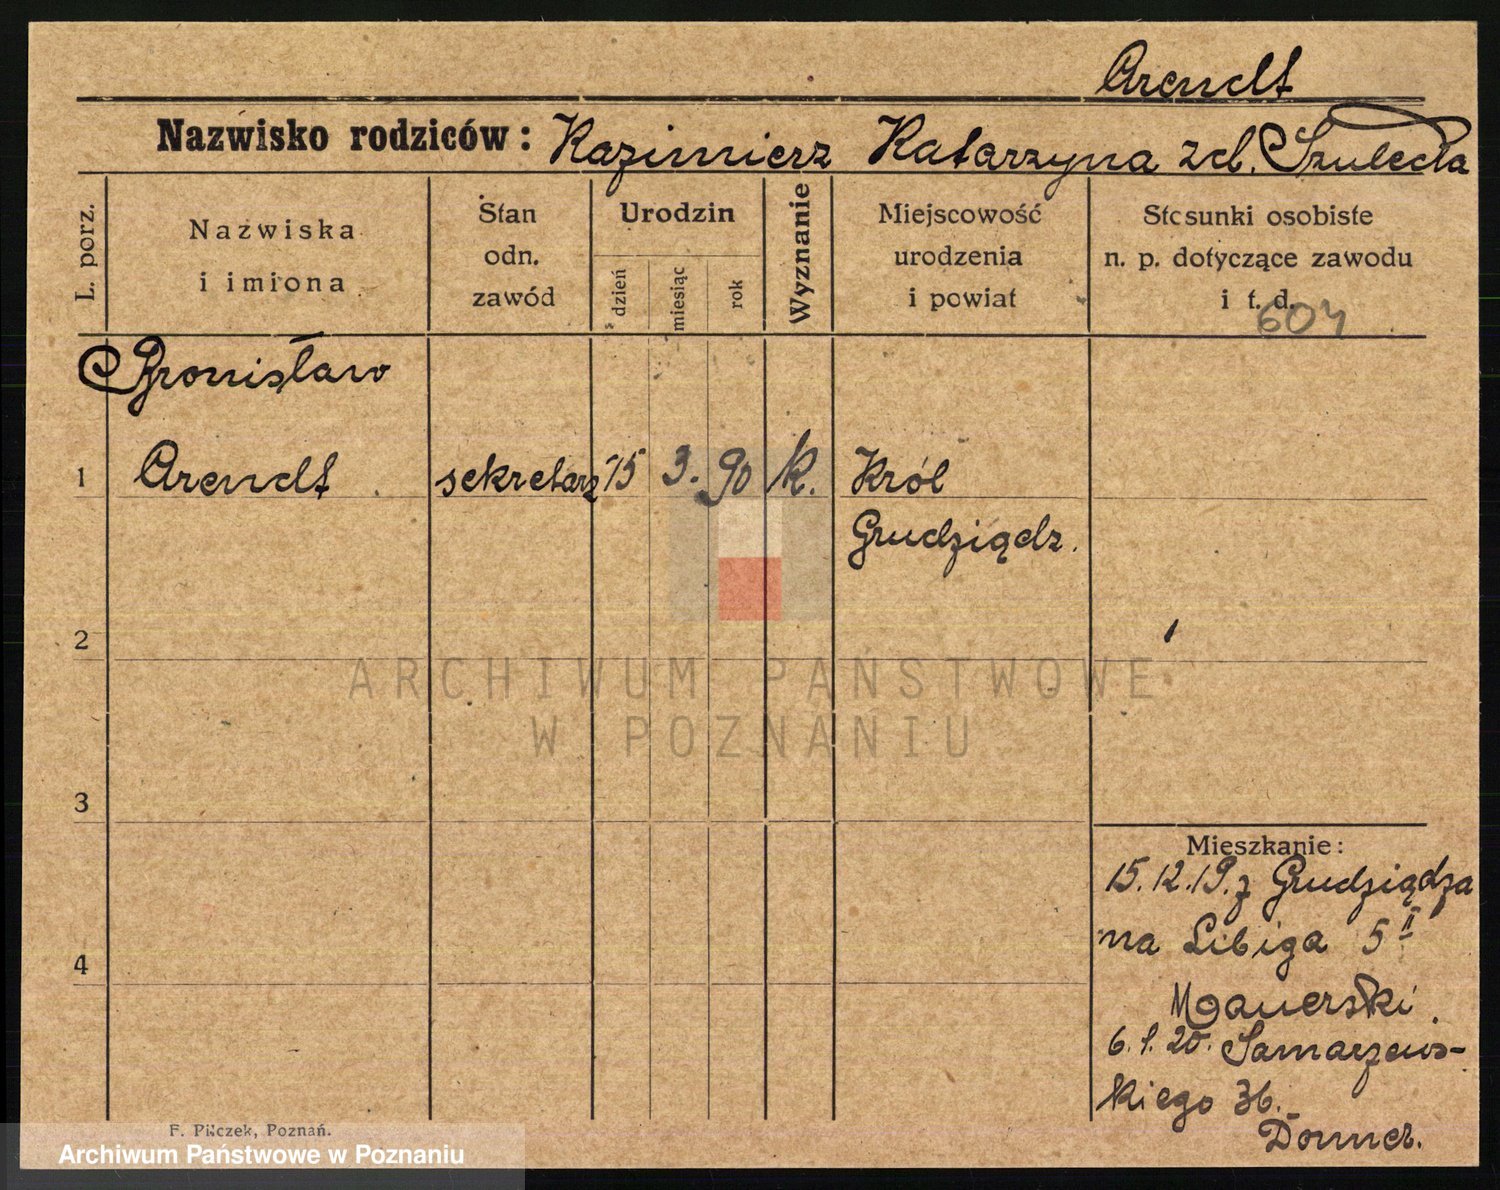 Arendt
Nazwisko rodziców: Kazimierz Katarzyna zd. Szulecka
L. porz.
Nazwiska
i imiona
Stan
odn.
zawód
Urodzin
dzień
miesiąc
rok
Wyznanie
Miejscowość
urodzenia
i powiat
Stosunki osobiste
n. p. dotyczące zawodu
i t. d.
604
Bronisław
1 Arendt sekretarz 15 3. 90 k. Król
Grudziądz.
2
3
4
Mieszkanie:
15.12.19. z Grudziądza
na Libiga 5 II
Manerski.
6.1.20. Samarzews-
kiego 36.
Donner.
F. Pilczek, Poznań.
ARCHIWUM PAŃSTWOWE
W POZNANIU
Archiwum Państwowe w Poznaniu